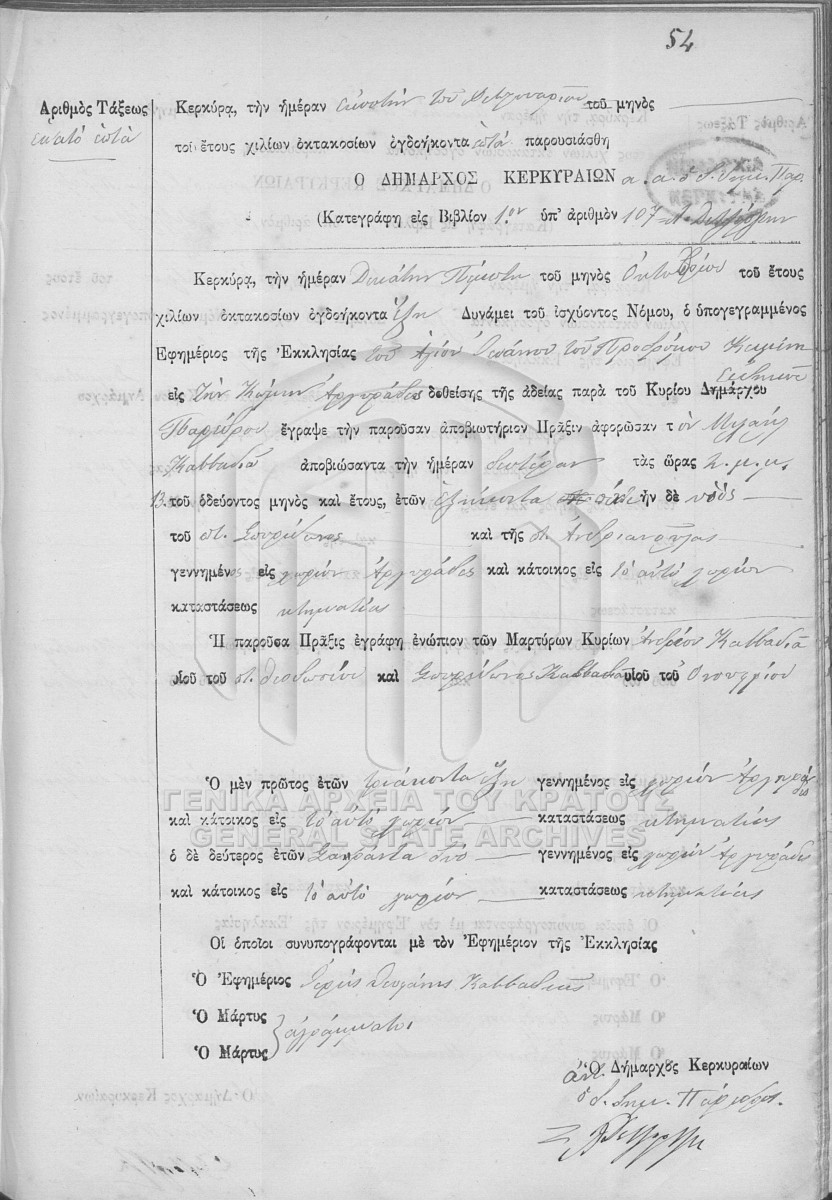 54
Ἀριθμὸς Τάξεως
εκατό επτά
Κερκύρα, τὴν ἡμέραν εικοστήν τοῦ μηνὸς
τοῦ ἔτους χιλίων ὀκτακοσίων ὀγδοήκοντα επτά παρουσιάσθη
Ὁ ΔΗΜΑΡΧΟΣ ΚΕΡΚΥΡΑΙΩΝ α. α. ὁ δημ. Παρ.
(Κατεγράφη εἰς Βιβλίον 1ον ὑπ' ἀριθμὸν 107
Κερκύρα, τὴν ἡμέραν Δεκάτην Πέμπτην τοῦ μηνὸς Οκτωβρίου τοῦ ἔτους
χιλίων ὀκτακοσίων ὀγδοήκοντα ἕξη Δυνάμει τοῦ ἰσχύοντος Νόμου, ὁ ὑπογεγραμμένος
Ἐφημέριος τῆς Ἐκκλησίας του Αγίου Ιωάννου του Προδρόμου Κειμένη
εἰς την Κώμην Αργυράδες δοθείσης τῆς ἀδείας παρὰ τοῦ Κυρίου Δημάρχου
Παρέδρου ἔγραψε τὴν παροῦσαν ἀποβιωτήριον Πρᾶξιν ἀφορῶσαν τὸν Μιχαήλ
Καββαδιά ἀποβιώσαντα τὴν ἡμέραν δευτέραν τὰς ὥρας 2. μ. μ.
13. τοῦ ὁδεύοντος μηνὸς καὶ ἔτους, ἐτῶν ἑξήκοντα ἦν δὲ υἱὸς
τοῦ ποτ. Σπυρίδωνος καὶ τῆς ποτ. Ἀνδριανούλας
γεννημένος εἰς χωρίον Αργυράδες καὶ κάτοικος εἰς το αυτό χωρίον
καταστάσεως κτηματίας
Ἡ παροῦσα Πρᾶξις ἐγράφη ἐνώπιον τῶν Μαρτύρων Κυρίων Ανδρέου Καββαδιά
υἱοῦ τοῦ ποτ. Θεοδωσίου καὶ Σπυρίδωνος Καββαδια υἱοῦ τοῦ Ονουφρίου
Ὁ μὲν πρῶτος ἐτῶν τριάκοντα ἕξη γεννημένος εἰς χωρίον Αργυράδες
ΓΕΝΙΚΑ ΑΡΧΕΙΑ ΤΟΥ ΚΡΑΤΟΥΣ
καὶ κάτοικος εἰς το αυτό χωρίον καταστάσεως κτηματίας
GENERAL STATE ARCHIVES
ὁ δὲ δεύτερος ἐτῶν Σαράντα δύο γεννημένος εἰς χωρίον Αργυράδες
καὶ κάτοικος εἰς το αυτό χωρίον καταστάσεως κτηματίας
Οἱ ὁποῖοι συνυπογράφονται μὲ τὸν Ἐφημέριον τῆς Ἐκκλησίας
Ὁ Ἐφημέριος Ιερεύς Θεοφάνης Καββαδιας
Ὁ Μάρτυς
αγράμματοι
Ὁ Μάρτυς
Ὁ Δήμαρχος Κερκυραίων
ἀντ.
ὁ δημ. Πάρεδρος